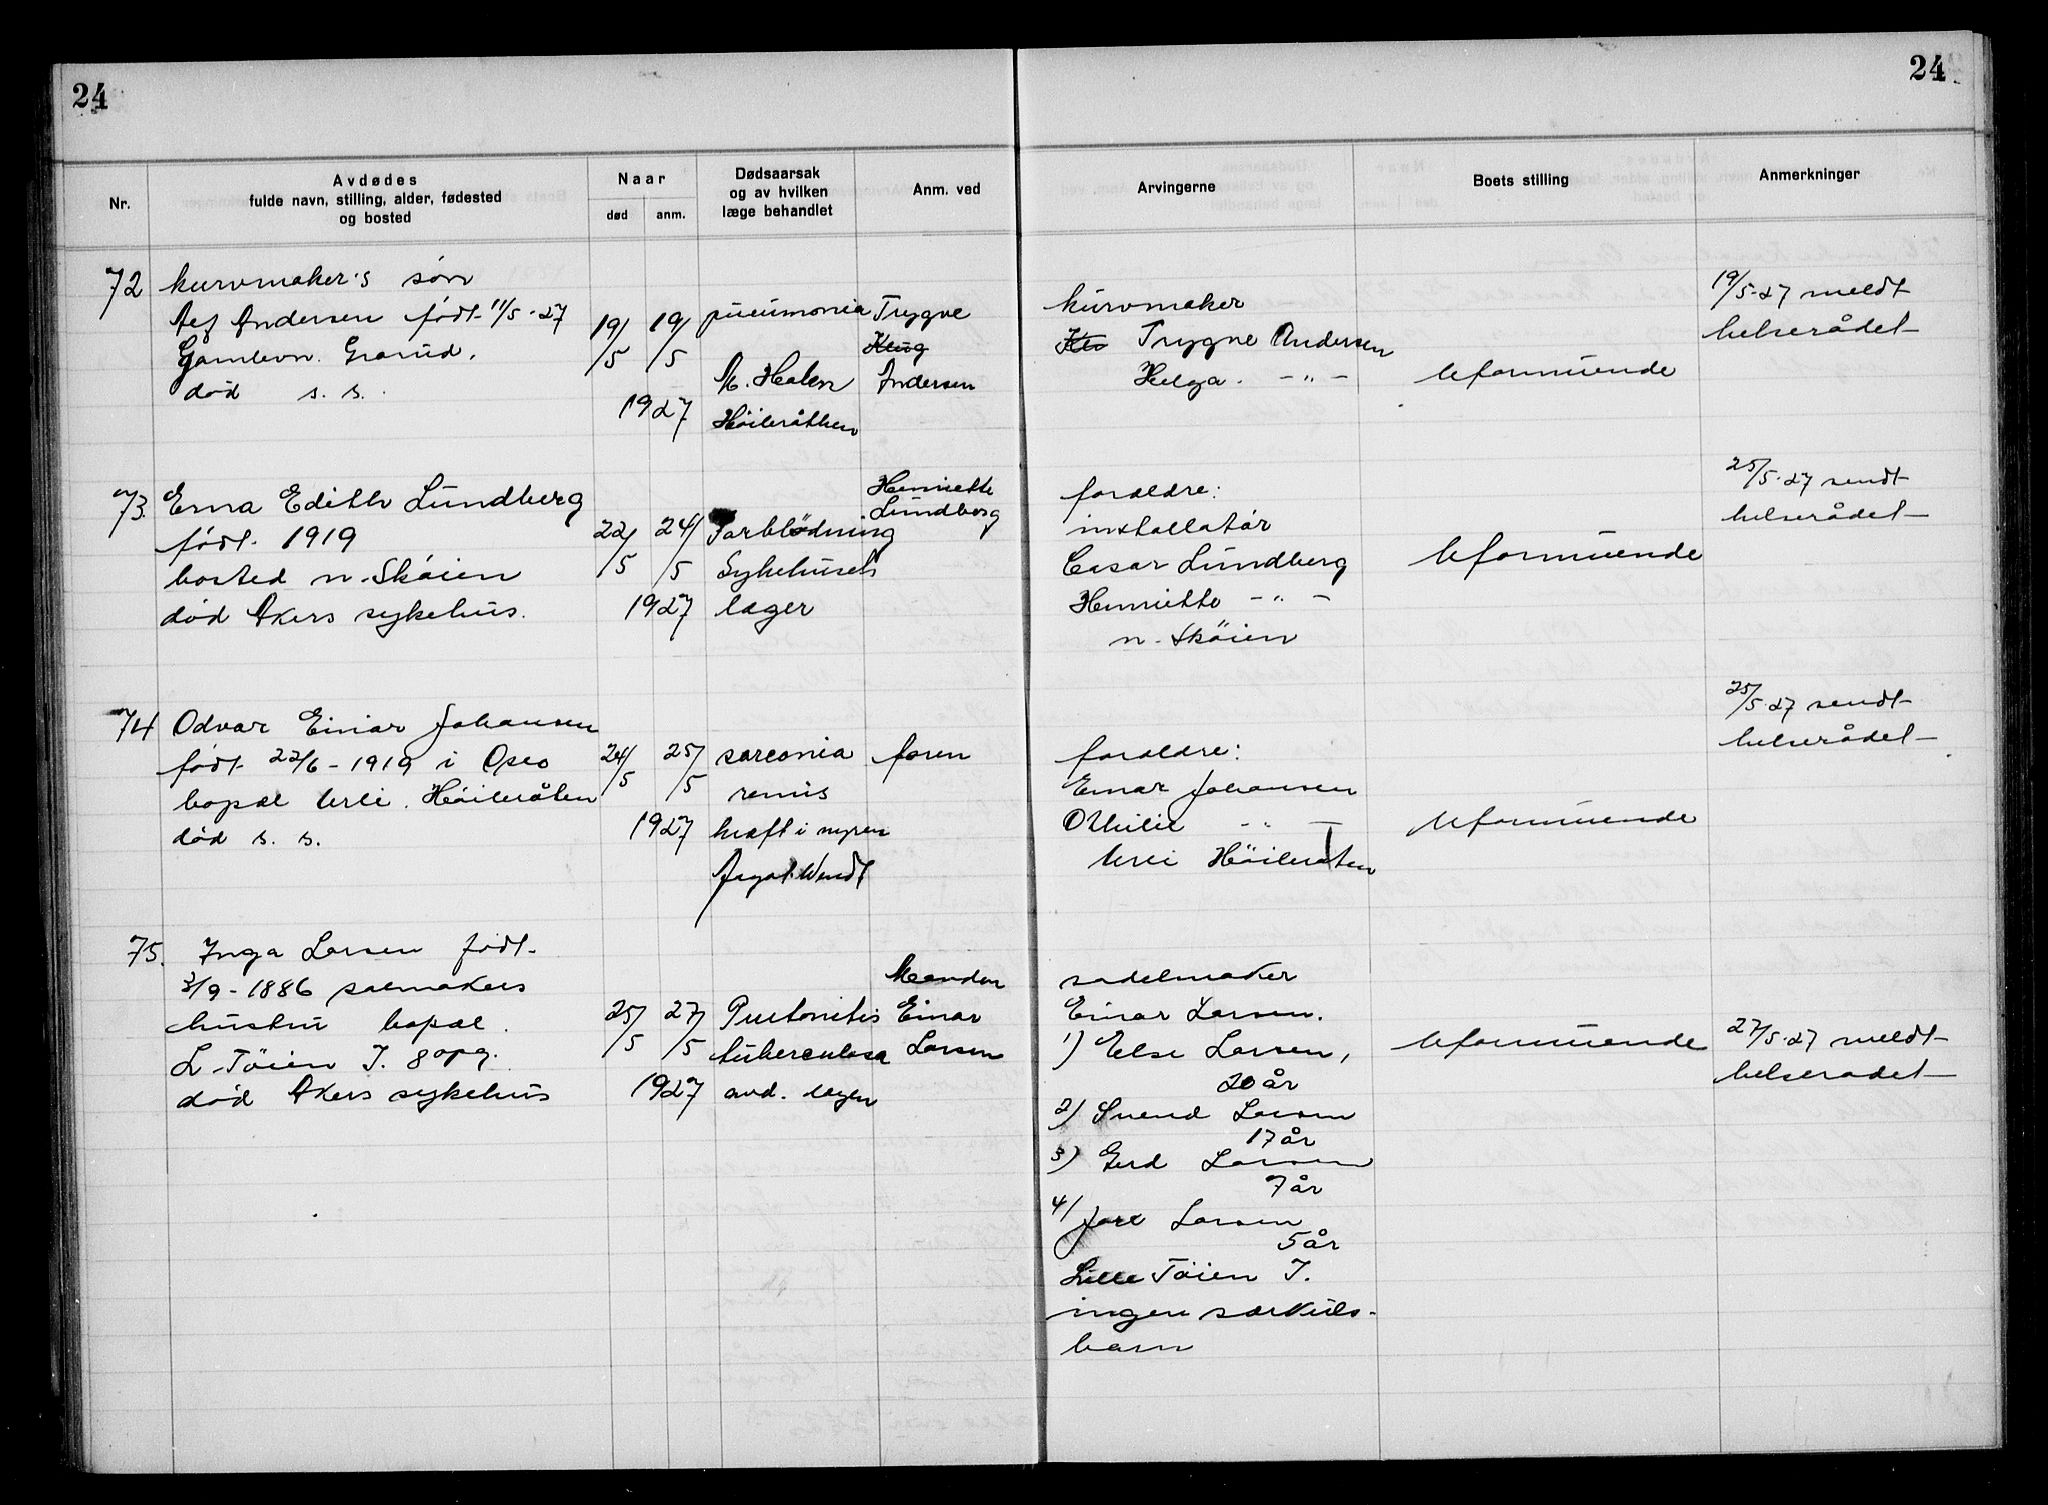 24
24
Nr.
Avdødes
fulde navn, stilling, alder, fødested
og bosted
Naar
død
anm.
Dødsaarsak
og av hvilken
læge behandlet
Anm. ved
Arvingerne
Boets stilling
Anmerkninger
72
kurvmaker's søn
Andersen født 11/5-27
Gamlevn. Grorud.
død s. s.
19/5
19/5
1927
pneumonia
M. Holen
Høibråthen
Trygve
Andersen
kurvmaker
Trygve Andersen
Helga. -"-
Uformuende
19/5-27 meldt
helserådet
73.
Erna Edith Lundberg
født 1919
bosted n. Skøien
død Akers sykehus.
22/5
24/5
1927
Forblødning
Sykehusets
læger
Henriette
Lundberg
forældre:
installatør
Cæsar Lundberg
Henriette -"-
n. Skøien
Uformuende
25/5-27 sendt
helserådet
74
Odvar Einar Johansen
født 22/6-1919 i Oslo
bopæl Urli. Høibråten
død s. s.
24/5
25/5
1927
sarcomia
renis
kræft i nyren
Wendt
faren
forældre:
Einar Johansen
Othilie -"-
Urli Høibråten
Uformuende
25/5-27 sendt
helserådet
75.
Inga Larsen født
3/9-1886 salmakers
hustru bopæl.
L. Tøien J. 8 opg.
død Akers sykehus
25/5
27/5
1927
Peritonitis
tuberculosa
avd. lægen
Manden
Einar
Larsen
sadelmaker
Einar Larsen.
1) Else Larsen,
20 år
2) Svend Larsen
17 år
3) Gerd Larsen
7 år
4) Joel Larsen
5 år
Lille Tøien J.
ingen særkuls-
barn
Uformuende
27/5-27 meldt
helserådet